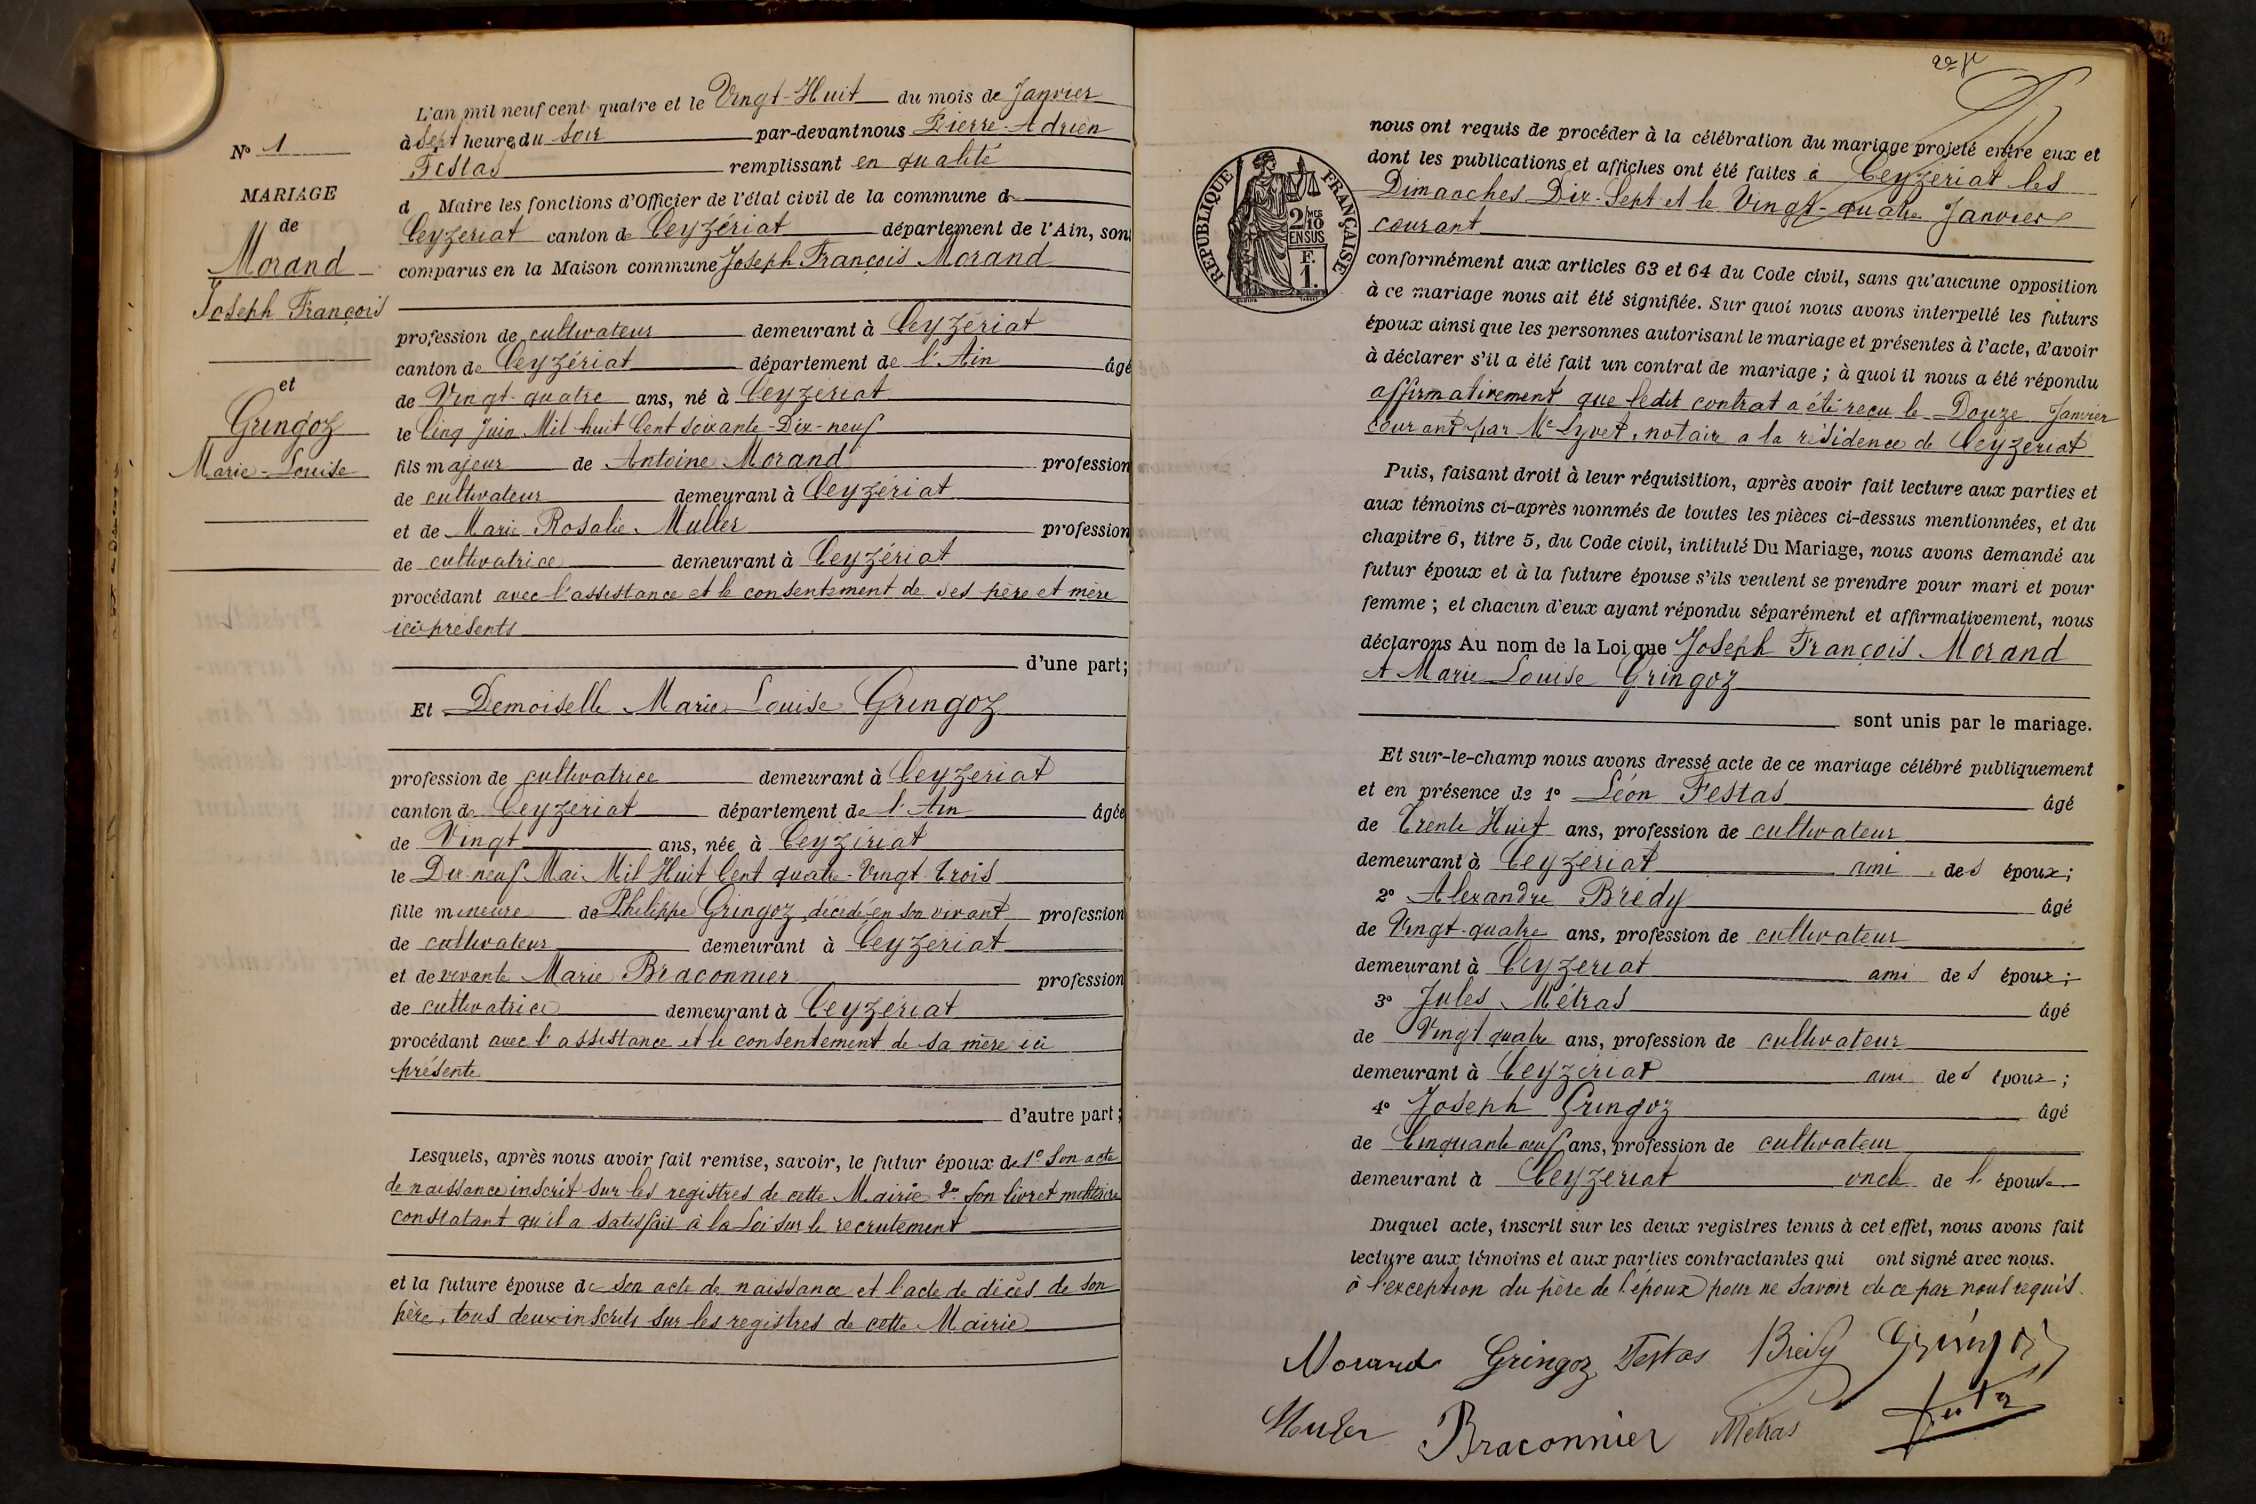 N° 1
MARIAGE
de
Morand
Joseph François
et
Gringoz
Marie-Louise
L'an mil neuf cent quatre et le Vingt-Huit du mois de Janvier
à Sept heures du soir par-devant nous Pierre-Adrien
Festas remplissant en qualité
d Maire les fonctions d'Officier de l'état civil de la commune de
Ceyzériat canton de Ceyzériat département de l'Ain, sont
comparus en la Maison commune Joseph François Morand
profession de cultivateur demeurant à Ceyzériat
canton de Ceyzériat département de l'Ain âgé
de Vingt-quatre ans, né à Ceyzériat
le Cinq Juin Mil huit Cent soixante-Dix-neuf
fils majeur de Antoine Morand profession
de cultivateur demeurant à Ceyzériat
et de Marie Rosalie Muller profession
de cultivatrice demeurant à Ceyzériat
procédant avec l'assistance et le consentement de ses père et mère
ici présents
d'une part;
Et Demoiselle Marie Louise Gringoz
profession de cultivatrice demeurant à Ceyzériat
canton de Ceyzériat département de l'Ain âgée
de Vingt ans, née à Ceyzériat
le Dix-neuf Mai Mil Huit Cent quatre-Vingt-Trois
fille mineure de Philippe Gringoz, décédé, en son vivant profession
de cultivateur demeurant à Ceyzériat
et de vivante Marie Braconnier profession
de cultivatrice demeurant à Ceyzériat
procédant avec l'assistance et le consentement de sa mère ici
présente
d'autre part;
Lesquels, après nous avoir fait remise, savoir, le futur époux de 1° Son acte
de naissance inscrit sur les registres de cette Mairie 2° Son livret militaire
constatant qu'il a satisfait à la Loi sur le recrutement
et la future épouse de son acte de naissance et l'acte de décès de son
père, tous deux inscrits sur les registres de cette Mairie
RÉPUBLIQUE FRANÇAISE
2/10
MES
EN SUS
F.
1.
nous ont requis de procéder à la célébration du mariage projeté entre eux et
dont les publications et affiches ont été faites à Ceyzériat les
Dimanches Dix-Sept et le Vingt-quatre Janvier
courant
conformément aux articles 63 et 64 du Code civil, sans qu'aucune opposition
à ce mariage nous ait été signifiée. Sur quoi nous avons interpellé les futurs
époux ainsi que les personnes autorisant le mariage et présentes à l'acte, d'avoir
à déclarer s'il a été fait un contrat de mariage; à quoi il nous a été répondu
affirmativement que ledit contrat a été reçu le Douze Janvier
courant par Me Syvet, notaire a la résidence de Ceyzériat
Puis, faisant droit à leur réquisition, après avoir fait lecture aux parties et
aux témoins ci-après nommés de toutes les pièces ci-dessus mentionnées, et du
chapitre 6, titre 5, du Code civil, intitulé Du Mariage, nous avons demandé au
futur époux et à la future épouse s'ils veulent se prendre pour mari et pour
femme; et chacun d'eux ayant répondu séparément et affirmativement, nous
déclarons Au nom de la Loi que Joseph François Morand
et Marie Louise Gringoz
sont unis par le mariage.
Et sur-le-champ nous avons dressé acte de ce mariage célébré publiquement
et en présence de 1° Léon Festas âgé
de Trente Huit ans, profession de cultivateur
demeurant à Ceyzériat ami des époux;
2° Alexandre Brédy âgé
de Vingt-quatre ans, profession de cultivateur
demeurant à Ceyzériat ami des époux;
3° Jules Métras âgé
de Vingt quatre ans, profession de cultivateur
demeurant à Ceyzériat ami des époux;
4° Joseph Gringoz âgé
de Cinquante neuf ans, profession de cultivateur
demeurant à Ceyzériat oncle de l'épouse
Duquel acte, inscrit sur les deux registres tenus à cet effet, nous avons fait
lecture aux témoins et aux parties contractantes qui ont signé avec nous.
à l'exception du père de l'époux pour ne savoir de ce par nous requis.
Morand Gringoz Festas Brédy Gringoz
Muller Braconnier Métras